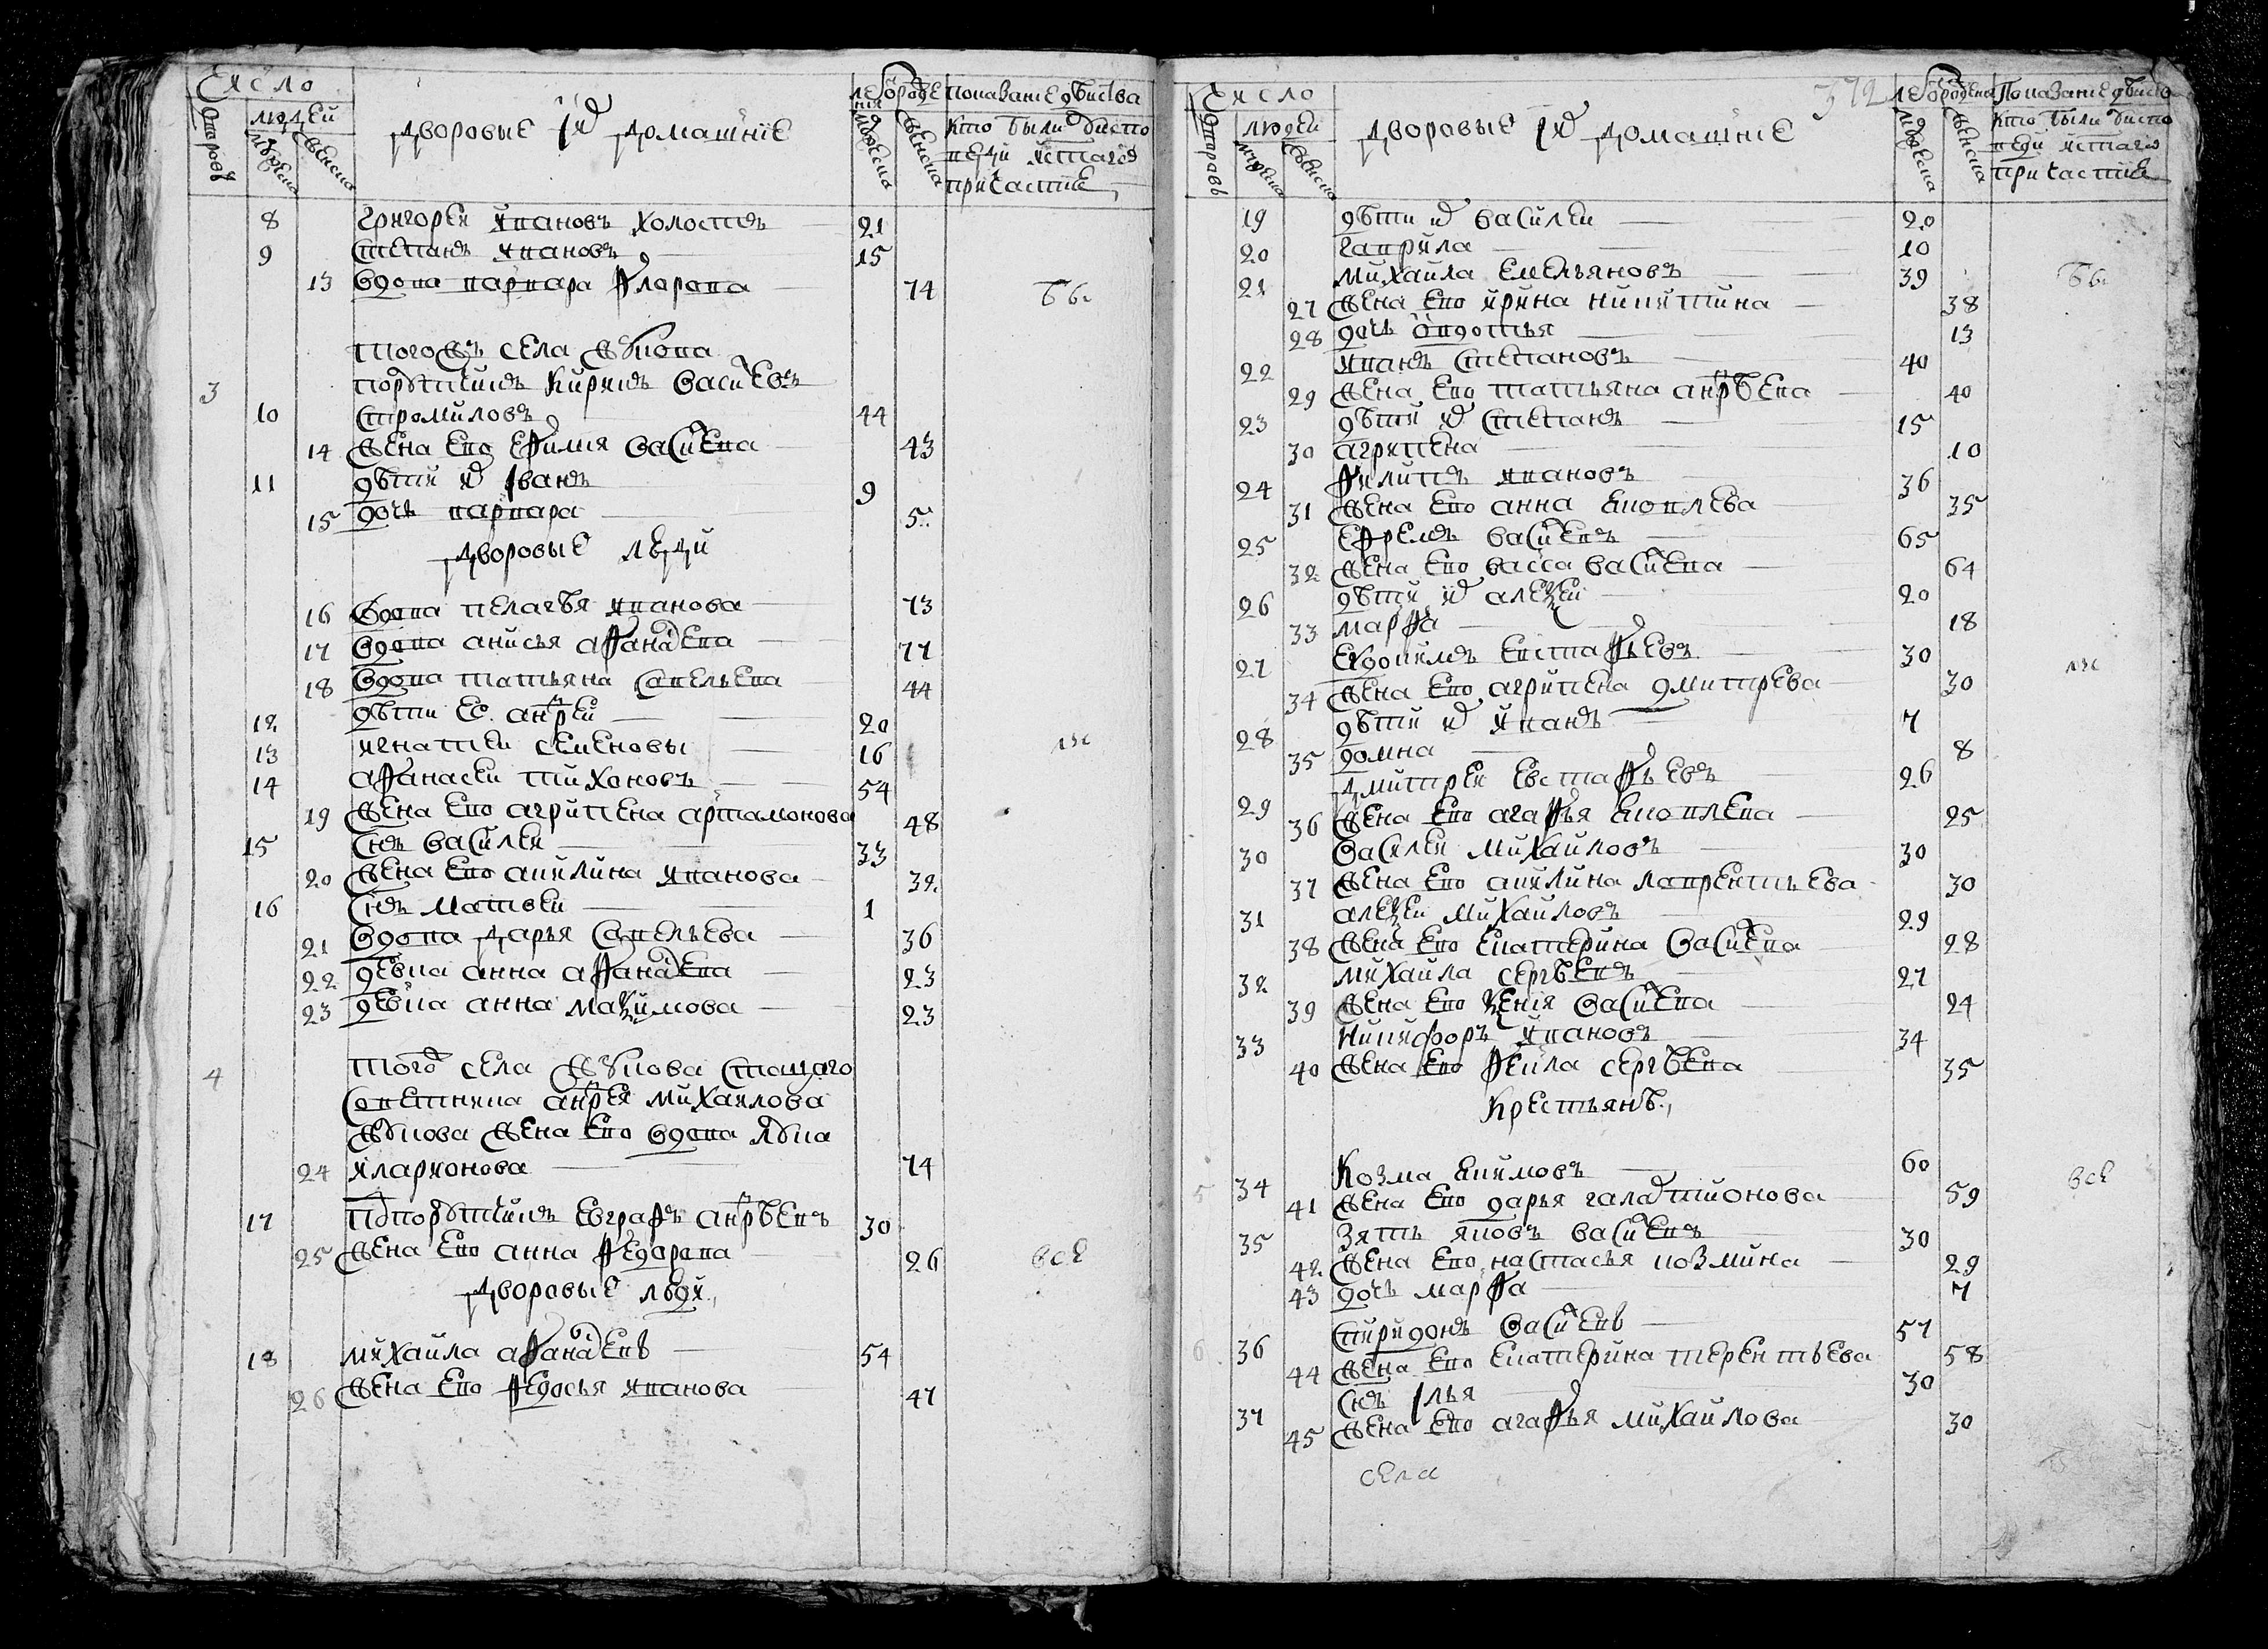 Число
дворовъ
людей
мужеска
женска
Дворовые їхъ домашнїе
лѣ ѿ рождения
мужеска
женска
показанїе дѣйства
кто были у исповеди и с̃таго
причастїя
8 Григореи Ивановъ холостъ 21
9 Степанъ Ивановъ 15
13 вдова варвара Флорова 74
тогожъ села Жукова
3 порутчикъ Кирилъ Васильевъ
10 Стромиловъ 44
14 жена ево Ефимия Васильева 43
11 дѣти их Іванъ 9
15 дочь варвара 5
дворовые люди
16 вдова пелагѣя Иванова 73
17 вдова анисья афанасьева 77
18 вдова татьяна Савельева 44
12 дѣти ее андрей 20
13 игнатеи семеновы 16
14 афанасеи тихоновъ 54
19 жена ево агрипена артамонова 48
15 сн̃ъ Василеи 33
20 жена ево акилина Иванова 32
16 сн̃ъ матвеи 1
21 вдова дарья Савельева 36
22 девка анна афанасьева 23
23 девка анна маѯимова 23
4 того села Жукова статцкаго
советника андрея михаилова
Жукова жена ево вдова
24 иларионова 74
17 подпорутчикъ Евграфъ андрѣевъ 30
25 жена ево анна Федорова 26
все
дворовые люди
18 михаила афанасьевъ 54
26 жена ево Федосья Иванова 47
372
Число
дворовъ
людей
мужеска
женска
дворовые їхъ домашнїе
лѣ ѿ рождения
мужеска
женска
Показанїе дѣйства
кто были у исповеди и с̃таго
причастїя
19 дѣти их василеи 20
20 гаврила 10
21 михаила емельяновъ 39
27 жена ево ирина никитина 38
28 дочь овдотья 13
22 Иванъ Степановъ 40
29 жена ево татьяна андрѣева 40
23 дѣти их Степанъ 15
30 агрипена 10
24 Филипъ ивановъ 36
31 жена ево анна яковлева 35
25 ефремъ васильевъ 65
32 жена ево васса васильева 64
26 дѣти их алеѯеи 20
33 марфа 18
27 Евдокимъ евстафьевъ 30
34 жена ево агрипена дмитрева 30
28 дѣти их Иванъ 7
35 домна 8
29 Дмитреи евстафьевъ 26
36 жена ево агафья яковлева 25
30 Василеи михаиловъ 30
37 жена ево акилина лаврентьева 30
31 алеѯеи михаиловъ 29
38 жена ево екатерина васильева 28
32 михаила сергѣевъ 27
39 жена ево ѯения васильева 24
33 никифоръ Ивановъ 34
40 жена ево Фекла сергѣева 35
Крестьянѣ
5 34 Козма екимовъ 60
все
41 жена ево дарья галактионова 59
35 зять яковъ васильевъ 30
42 жена ево настасья козмина 29
43 дочь марфа 7
6 36 спиридонъ васильевъ 57
44 жена ево екатерина терентьева 58
37 сн̃ъ Илья 30
45 жена ево агафья михаилова 30
села